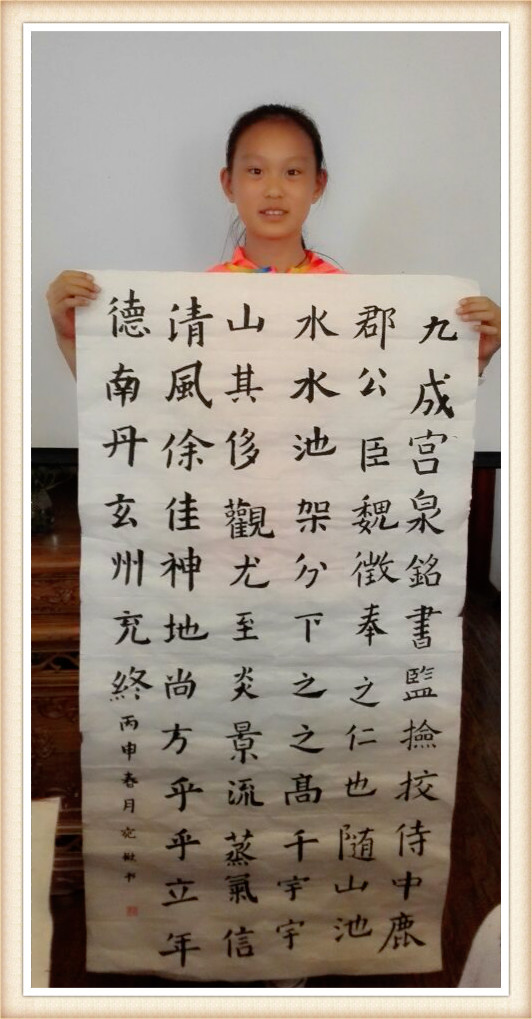 九成宫泉銘書監撿挍侍中鹿
郡公臣魏徵奉之仁也随山池
水水池架分下之之髙千宇宇
山其侈觀尤至炎景流蒸氣信
清風徐佳神地尚方乎乎立年
德南丹玄州充終
丙申春月